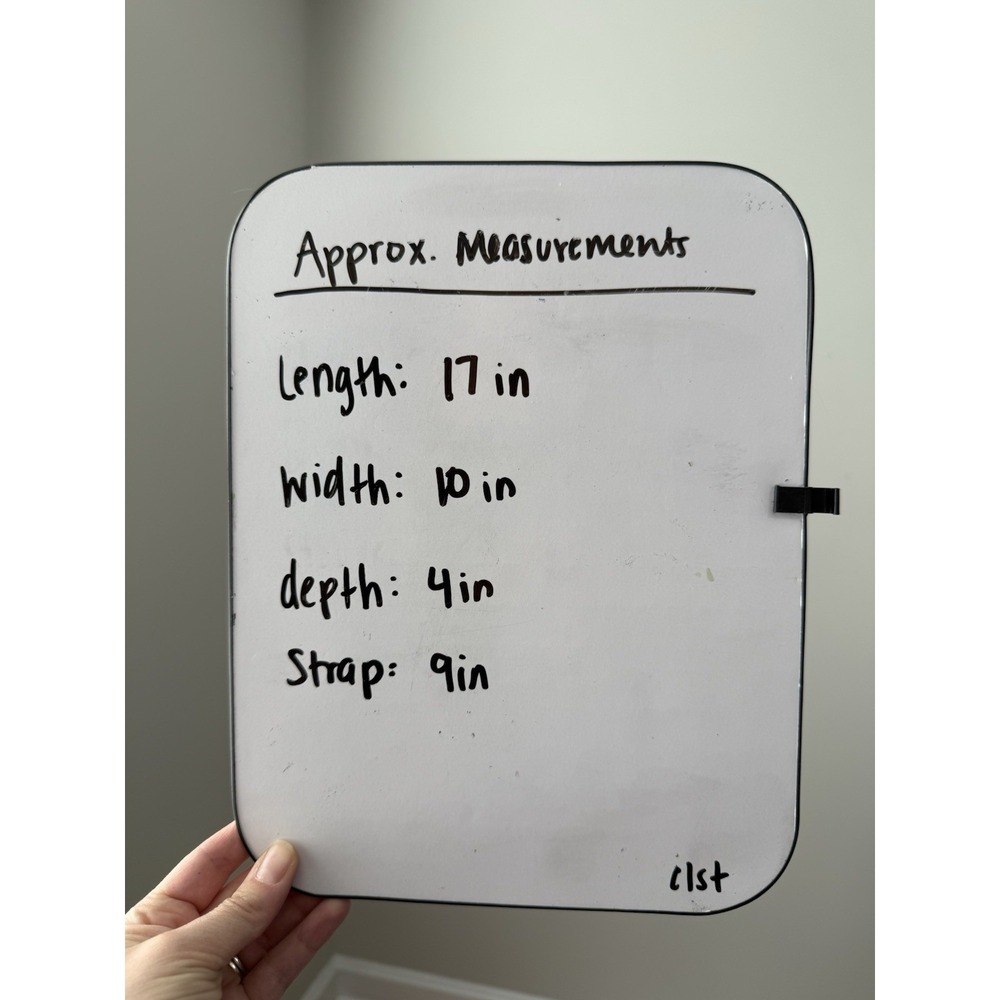 Approx. Measurements
Length: 17 in
width: 10 in
depth: 4in
Strap: 9in
clst